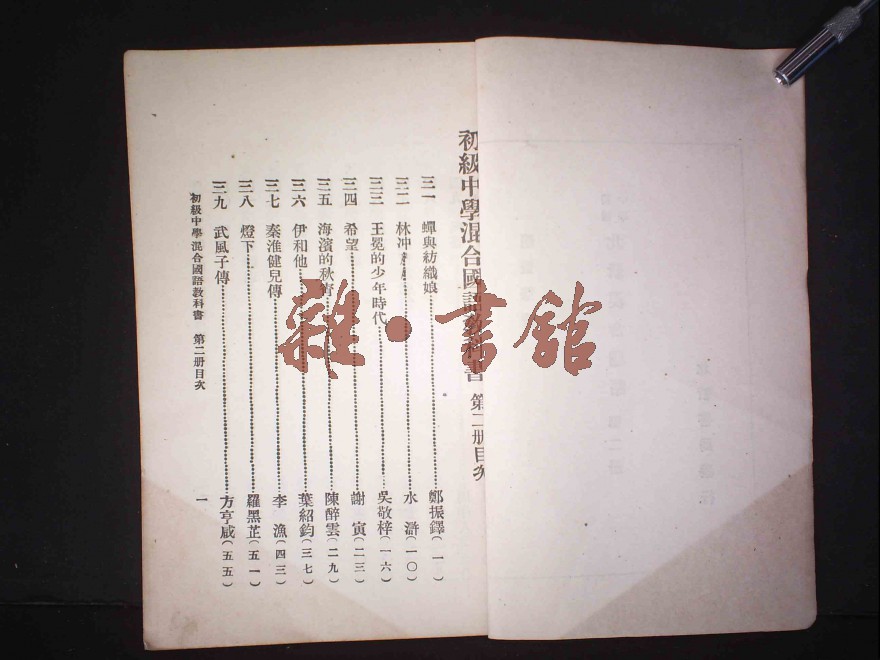 初級中學混合國語教科書 第二册目次
三一 蟬與紡織娘 鄭振鐸(一)
三二 林冲 水滸(一〇)
三三 王冕的少年時代 吳敬梓(一六)
三四 希望 謝寅(二三)
三五 海濱的秋宵 陳醉雲(二九)
三六 伊和他 葉紹鈞(三七)
三七 秦淮健兒傳 李漁(四三)
三八 燈下 羅黑芷(五一)
三九 武風子傳 方亨咸(五五)
初級中學混合國語教科書 第二册目次 一
雜·書館